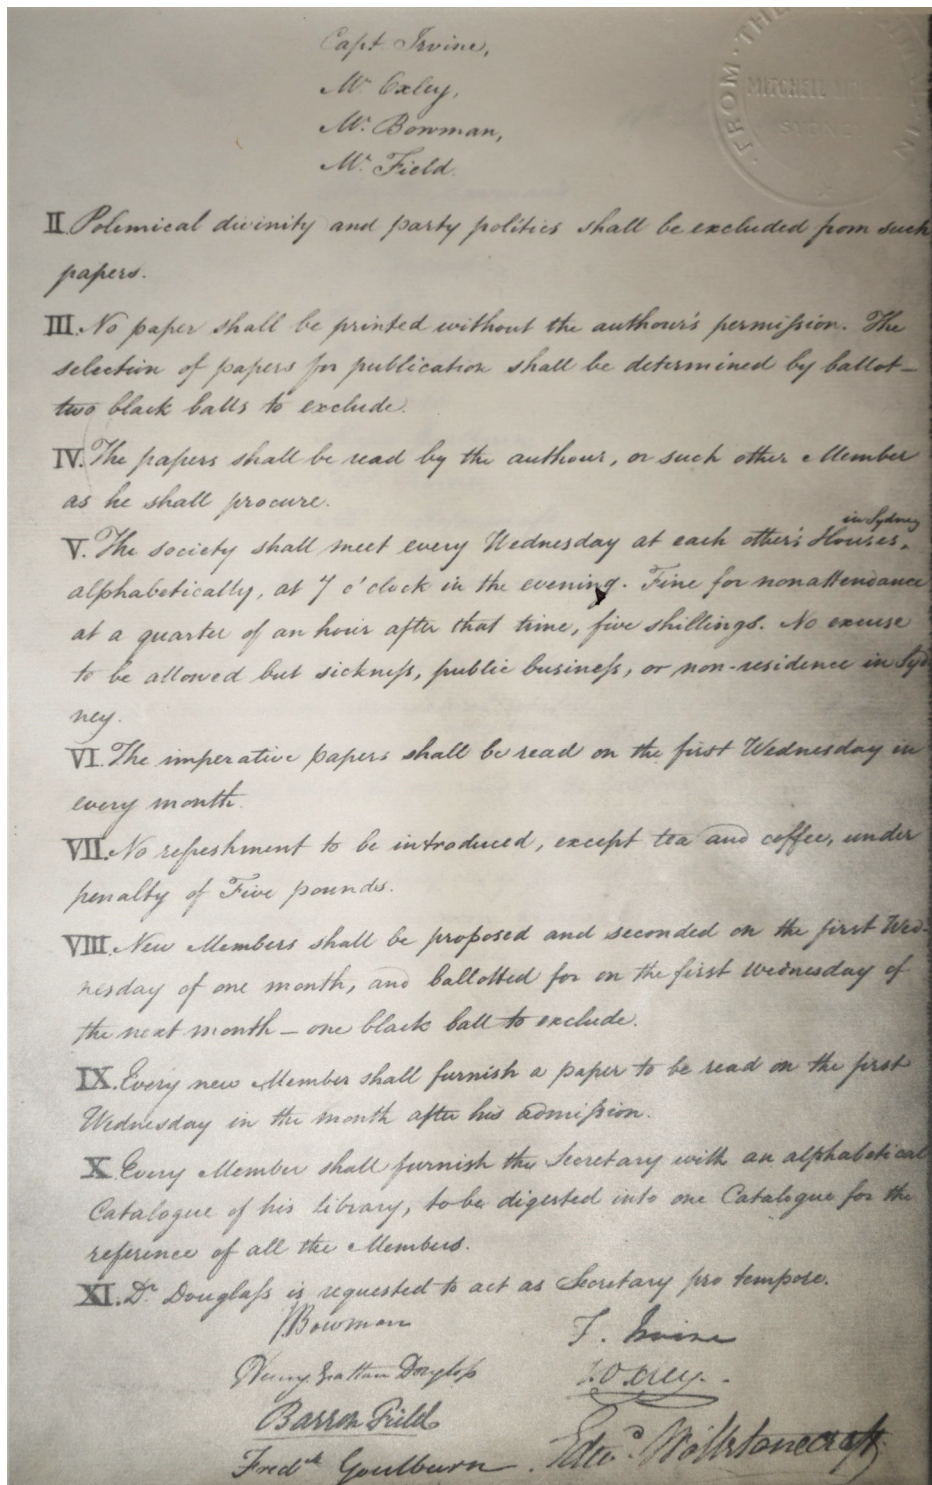 Capt. Irvine,
Mr. Oxley,
Mr. Bowman,
Mr. Field.
FROM · THE
MITCHELL
SYDNEY
II. Polemical divinity and party politics shall be excluded from such
papers.
III. No paper shall be printed without the authour's permiſsion. The
selection of papers for publication shall be determined by ballot –
two black balls to exclude.
IV. The papers shall be read by the authour, or such other Member
as he shall procure.
in Sydney
V. The society shall meet every Wednesday at each other's Houses,
alphabetically, at 7 o'clock in the evening. Fine for nonattendance
at a quarter of an hour after that time, five shillings. No excuse
to be allowed but sickneſs, public busineſs, or non-residence in Syd
ney.
VI. The imperative papers shall be read on the first Wednesday in
every month.
VII. No refreshment to be introduced, except tea and coffee, under
penalty of Five pounds.
VIII. New Members shall be proposed and seconded on the first Wed-
nesday of one month, and ballotted for on the first wednesday of
the next month – one black ball to exclude.
IX. Every new Member shall furnish a paper to be read on the first
Wednesday in the month after his admiſsion.
X. Every Member shall furnish the Secretary with an alphabetical
Catalogue of his library, to be digested into one Catalogue for the
reference of all the Members.
XI. Dr. Douglaſs is requested to act as Secretary pro tempore.
J Bowman
F. Irvine
Henry Grattan Douglaſs
J. Oxley.
Barron Field
Fredk Goulburn
Edwd. Wollstonecraft